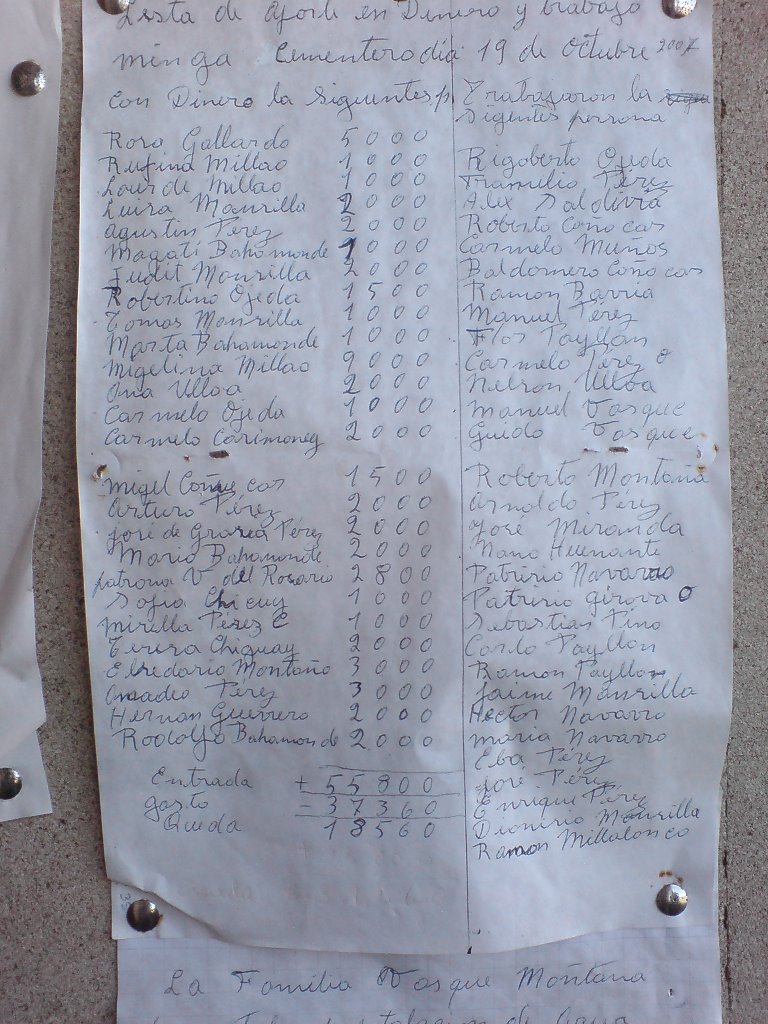 Lista de Aporte en Dinero y trabajo
minga Cementero día 19 de Octubre 2007
Con Dinero la Siguentes p.
Rosa Gallardo 5000
Rufina Millao 1000
Lourde Millao 1000
Luisa Mansilla 2000
Agustin Perez 2000
Magati Bahamonde 1000
Judit Mansilla 2000
Robertino Ojeda 1500
Tomas Mansilla 1000
Marta Bahamonde 1000
Migelina Millao 9000
Ana Ulloa 2000
Carmelo Ojeda 1000
Carmelo Carimoney 2000
Migel Coñue car 1500
Arturo Pérez 2000
José de Gracia Pérez 2000
Mario Bahamonde 2000
patrona V. del Rosario 2800
Sofia Chicuy 1000
Mirella Perez C 1000
Teresa Chiguay 2000
Elredario Montaña 3000
Amadeo Pérez 3000
Hernan Guerrero 2000
Rodolfo Bahamonde 2000
Entrada + 55800
gasto - 37360
Queda 18560
Trabajaron la
Sigentes persona
Rigoberto Ojeda
Framilio Pérez
Alex Saldivia
Roberto Coño car
Carmelo Muños
Baldomero Coño car
Ramon Barria
Manuel Pérez
Flor Payllan
Carmelo Pérez O
Nelson Ulloa
Manuel Vasque
Guido Vasque
Roberto Montaña
Arnoldo Pérez
José Miranda
Nano Huenante
Patricio Navarro
Patricio girova O
Sebastian Pino
Carlo Payllan
Ramon Payllan
Jaime Mansilla
Hector Navarro
maria Navarro
Eba Pérez
José Pérez
Enrique Pérez
Dionisio Mansilla
Ramon Millalonco
La Familia Vasque Montaña
de Agua